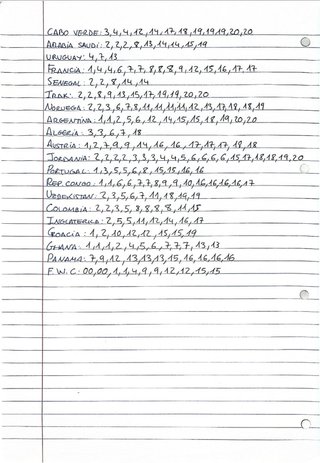 CABO VERDE: 3,4,4,12,14,17,18,19,19,19,20,20
ARABIA SAUDI: 2,2,2,8,13,14,14,15,19
URUGUAY: 4,7,13
FRANCIA: 1,4,4,6,7,7,8,8,8,9,12,15,16,17,17
SENEGAL: 2,2,8,14,14
IRAK: 2,2,8,9,13,15,17,19,19,20,20
NORUEGA: 2,2,3,6,7,8,11,11,11,11,12,13,17,18,18,19
ARGENTINA: 1,1,2,5,6,12,14,15,15,18,19,20,20
ALGERIA: 3,3,6,7,18
AUSTRIA: 1,2,7,9,9,14,16,16,17,17,17,18,18
JORDANIA: 2,2,2,2,3,3,3,4,4,5,6,6,6,6,15,17,18,18,19,20
PORTUGAL: 1,3,5,5,6,8,15,15,16,16
REP. CONGO: 1,1,6,6,7,7,8,9,9,10,16,16,16,16,17
UZBEKISTAN: 2,3,5,6,7,11,18,19,19
COLOMBIA: 2,2,3,5,8,8,8,8,11,18
INGLATERRA: 2,5,5,11,12,14,16,17
CROACIA: 1,2,10,12,12,15,15,19
GHANA: 1,1,1,2,4,5,6,7,7,7,13,13
PANAMA: 7,9,12,13,13,13,15,16,16,16,16
F.W.C: 00,00,1,1,4,9,9,12,12,15,15